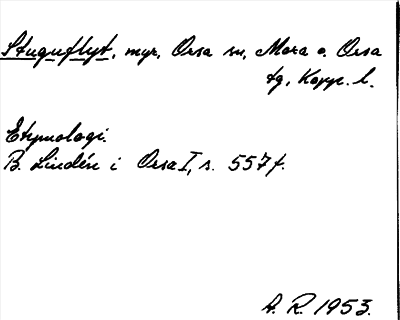 Stuguflyt, myr, Orsa sn, Mora o. Orsa
tg, Kopp. l.
Etymologi.
B. Lindén i Orsa I, s. 557 f.
A. R. 1953.